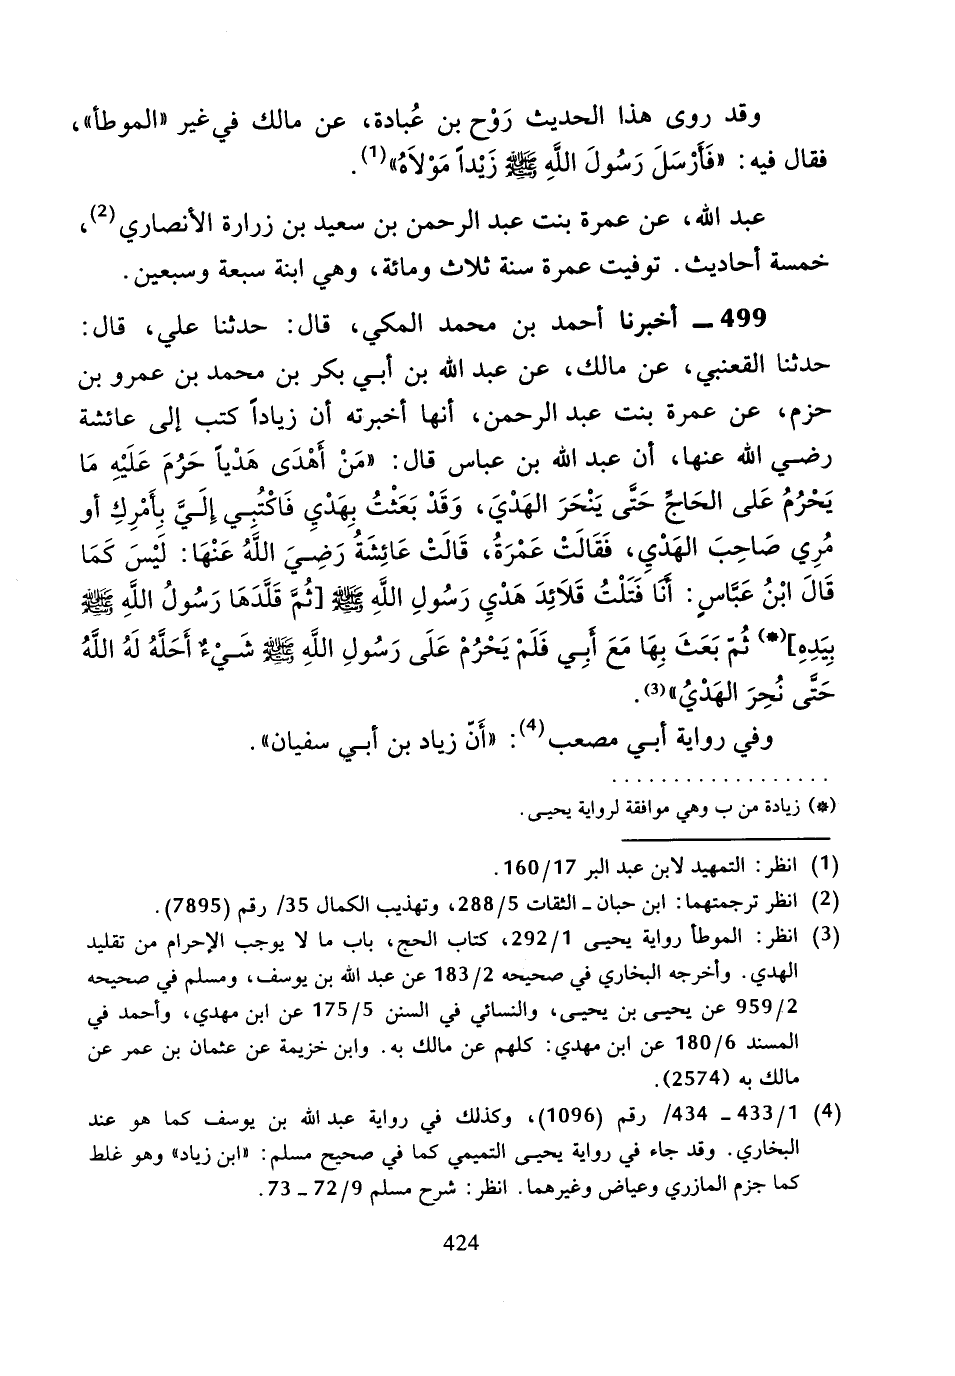 وقد روى هذا الحديث رَوْح بن عُبادة، عن مالك في غير «الموطأ»،
فقال فيه: «فَأَرْسَلَ رَسُولَ اللَّهِ ﷺ زَيْداً مَوْلَاهُ»(1).
عبد الله، عن عمرة بنت عبد الرحمن بن سعيد بن زرارة الأنصاري(2)،
خمسة أحاديث. توفيت عمرة سنة ثلاث ومائة، وهي ابنة سبعة وسبعين.
499 ـ أخبرنا أحمد بن محمد المكي، قال: حدثنا علي، قال:
حدثنا القعنبي، عن مالك، عن عبد الله بن أبي بكر بن محمد بن عمرو بن
حزم، عن عمرة بنت عبد الرحمن، أنها أخبرته أن زياداً كتب إلى عائشة
رضي الله عنها، أن عبد الله بن عباس قال: «مَنْ أَهْدَى هَدْياً حَرُمَ عَلَيْهِ مَا
يَحْرُمُ عَلى الحَاجِّ حَتَّى يَنْحَرَ الهَدْيَ، وَقَدْ بَعَثْتُ بِهَدْيٍ فَاكْتُبِي إِلَيَّ بِأَمْرِكِ أو
مُرِي صَاحِبَ الهَدْيِ، فَقَالَتْ عَمْرَةُ، قَالَتْ عَائِشَةُ رَضِيَ اللَّهُ عَنْهَا: لَيْسَ كَمَا
قَالَ ابْنُ عَبَّاسٍ: أَنَا فَتَلْتُ قَلَائِدَ هَدْيِ رَسُولِ اللَّهِ ﷺ [ثُمَّ قَلَّدَهَا رَسُولُ اللَّهِ ﷺ
بِيَدِهِ](*) ثُمّ بَعَثَ بِهَا مَعَ أَبِي فَلَمْ يَحْرُمْ عَلَى رَسُولِ اللَّهِ ﷺ شَيْءٌ أَحَلَّهُ لَهُ اللَّهُ
حَتَّى نُحِرَ الهَدْيُ»(3).
وفي رواية أبي مصعب(4): «أَنّ زياد بن أبي سفيان».
(*) زيادة من ب وهي موافقة لرواية يحيى.
(1) انظر: التمهيد لابن عبد البر 160/17.
(2) انظر ترجمتهما: ابن حبان ـ الثقات 288/5، وتهذيب الكمال 35/ رقم (7895).
(3) انظر: الموطأ رواية يحيى 292/1، كتاب الحج، باب ما لا يوجب الإحرام من تقليد
الهدي. وأخرجه البخاري في صحيحه 183/2 عن عبد الله بن يوسف، ومسلم في صحيحه
959/2 عن يحيى بن يحيى، والنسائي في السنن 175/5 عن ابن مهدي، وأحمد في
المسند 180/6 عن ابن مهدي: كلهم عن مالك به. وابن خزيمة عن عثمان بن عمر عن
مالك به (2574).
(4) 433/1 ـ 434/ رقم (1096)، وكذلك في رواية عبد الله بن يوسف كما هو عند
البخاري. وقد جاء في رواية يحيى التميمي كما في صحيح مسلم: «ابن زياد» وهو غلط
كما جزم المازري وعياض وغيرهما. انظر: شرح مسلم 72/9 ـ 73.
424